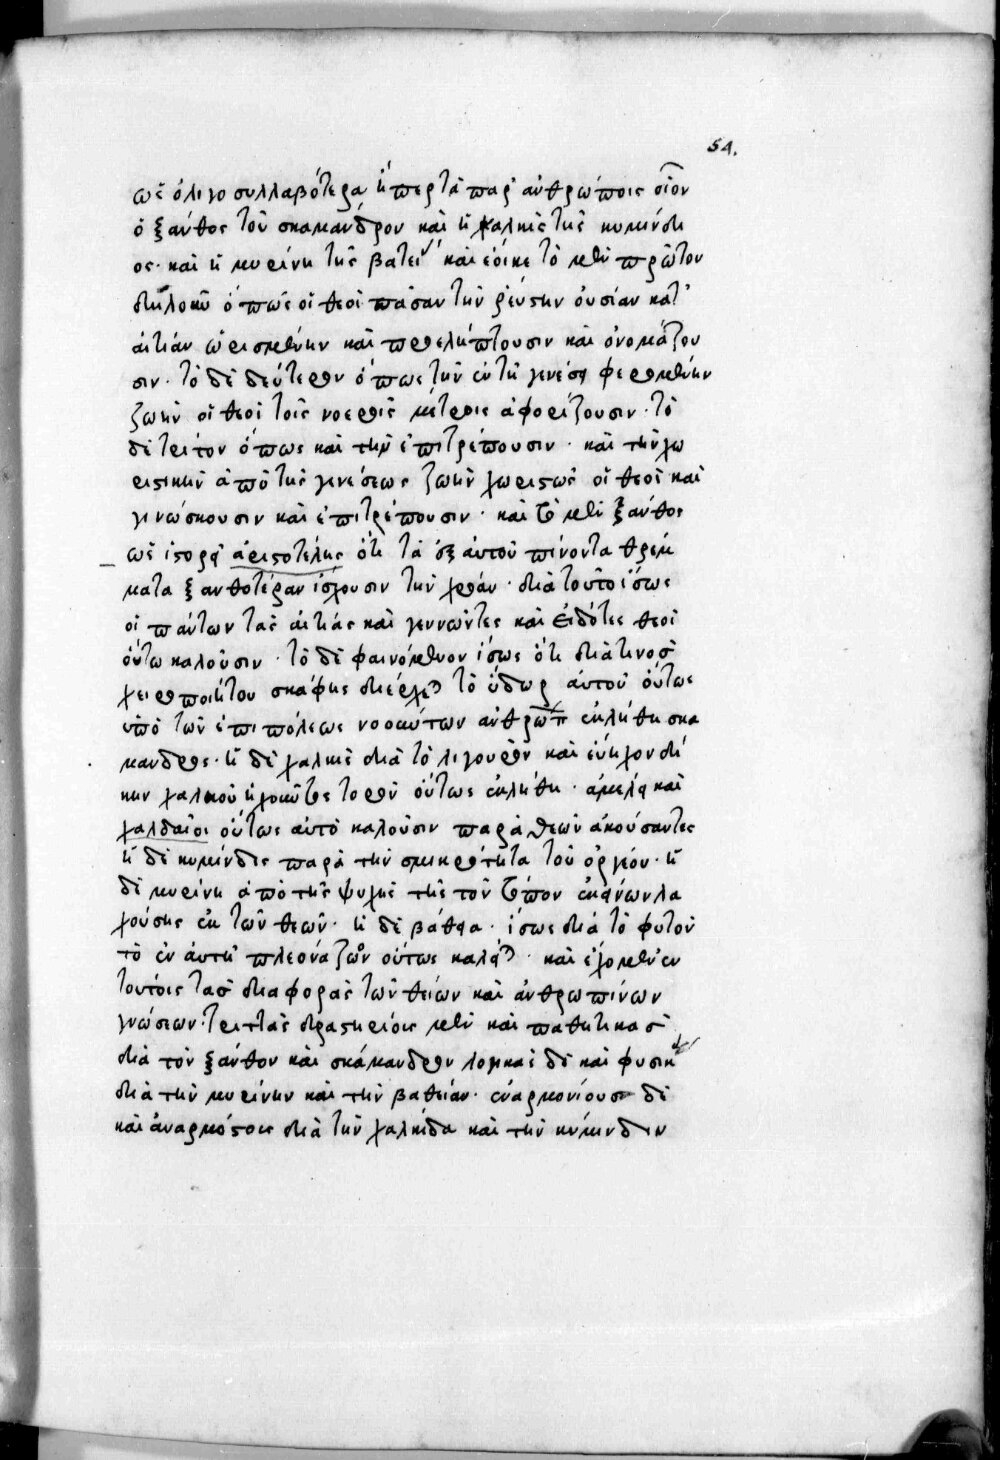 54.
ὡς ὀλιγοσυλλαβότερα ἤπερ τὰ παρ' ἀνθρώποις οἷον
ὁ ξάνθος τοῦ σκαμάνδρου καὶ ἡ χαλκὶς τῆς κυμίνδι
ος· καὶ ἡ μυρίνη τῆς βατεί καὶ ἔοικε τὸ μὲν πρῶτον
δηλοῦν ὅπως οἱ θεοὶ πᾶσαν τὴν ῥεύστην οὐσίαν κατ'
αἰτίαν ὡρισμένην καὶ προειλήπτουσιν καὶ ὀνομάζου
σιν· τὸ δὲ δεύτερον ὅπως τὴν ἐν τῇ γενέσει φερομένην
ζωὴν οἱ θεοὶ τοῖς νοεροῖς μέτροις ἀφορίζουσιν· τὸ
δὲ τρίτον ὅπως καὶ τὴν ἐπιτρέπουσιν· καὶ τὴν χω
ριστικὴν ἀπὸ τῆς γενέσεως ζωὴν χωριστῶς οἱ θεοὶ καὶ
γινώσκουσιν καὶ ἐπιτρέπουσιν· καὶ τὸ μὲν ξάνθος
ὡς ἱστορεῖ ἀριστοτέλης ὅτι τὰ ἐξ αὐτοῦ πίνοντα θρέμ
ματα ξανθοτέραν ἴσχουσιν τὴν χρόαν· διὰ τοῦτο ἴσως
οἱ πάντων τὰς αἰτίας καὶ γεννῶντες καὶ εἰδότες θεοὶ
οὕτω καλοῦσιν· τὸ δὲ φαινόμενον ἴσως ὅτι διὰ τινος
χειροποιήτου σκάφης διέρχεται τὸ ὕδωρ αὐτοῦ οὕτως
ὑπὸ τῶν ἐπιπόλεως νοούντων ἀνθρώπ ἐκλήθη σκα
μανδρος· ἡ δὲ χαλκὶς διὰ τὸ λιγουρὸν καὶ εὔηχον δί
κην χαλκοῦ ἠχοῦντος τορὸν οὕτως ἐκλήθη· ἀμέλει καὶ
χαλδαῖοι οὕτως αὐτὸ καλοῦσιν παρὰ θεῶν ἀκούσαντες
ἡ δὲ κυμίνδις παρὰ τὴν σμικρότητα τοῦ ὀρνέου· ἡ
δὲ μυρίνη ἀπὸ τῆς ψυχῆς τῆς τὸν τόπον ἐκεῖνον λα
χούσης ἐκ τῶν θεῶν· ἡ δὲ βάθεια· ἴσως διὰ τὸ φυτὸν
τὸ ἐν αὐτῇ πλεονάζον οὕτως καλεῖται· καὶ ἔχομεν ἐν
τούτοις τὰς διαφορὰς τῶν θείων καὶ ἀνθρωπίνων
γνώσεων· τριττὰς δραστηρίοις μὲν καὶ παθητικὰς
διὰ τὸν ξάνθον καὶ σκάμανδρον λογικαὶ δὲ καὶ φυσικ
διὰ τὴν μυρίνην καὶ τὴν βαθείαν· ἐναρμονίους δὲ
καὶ ἀναρμόστοις διὰ τὴν χαλκίδα καὶ τὴν κύμινδιν